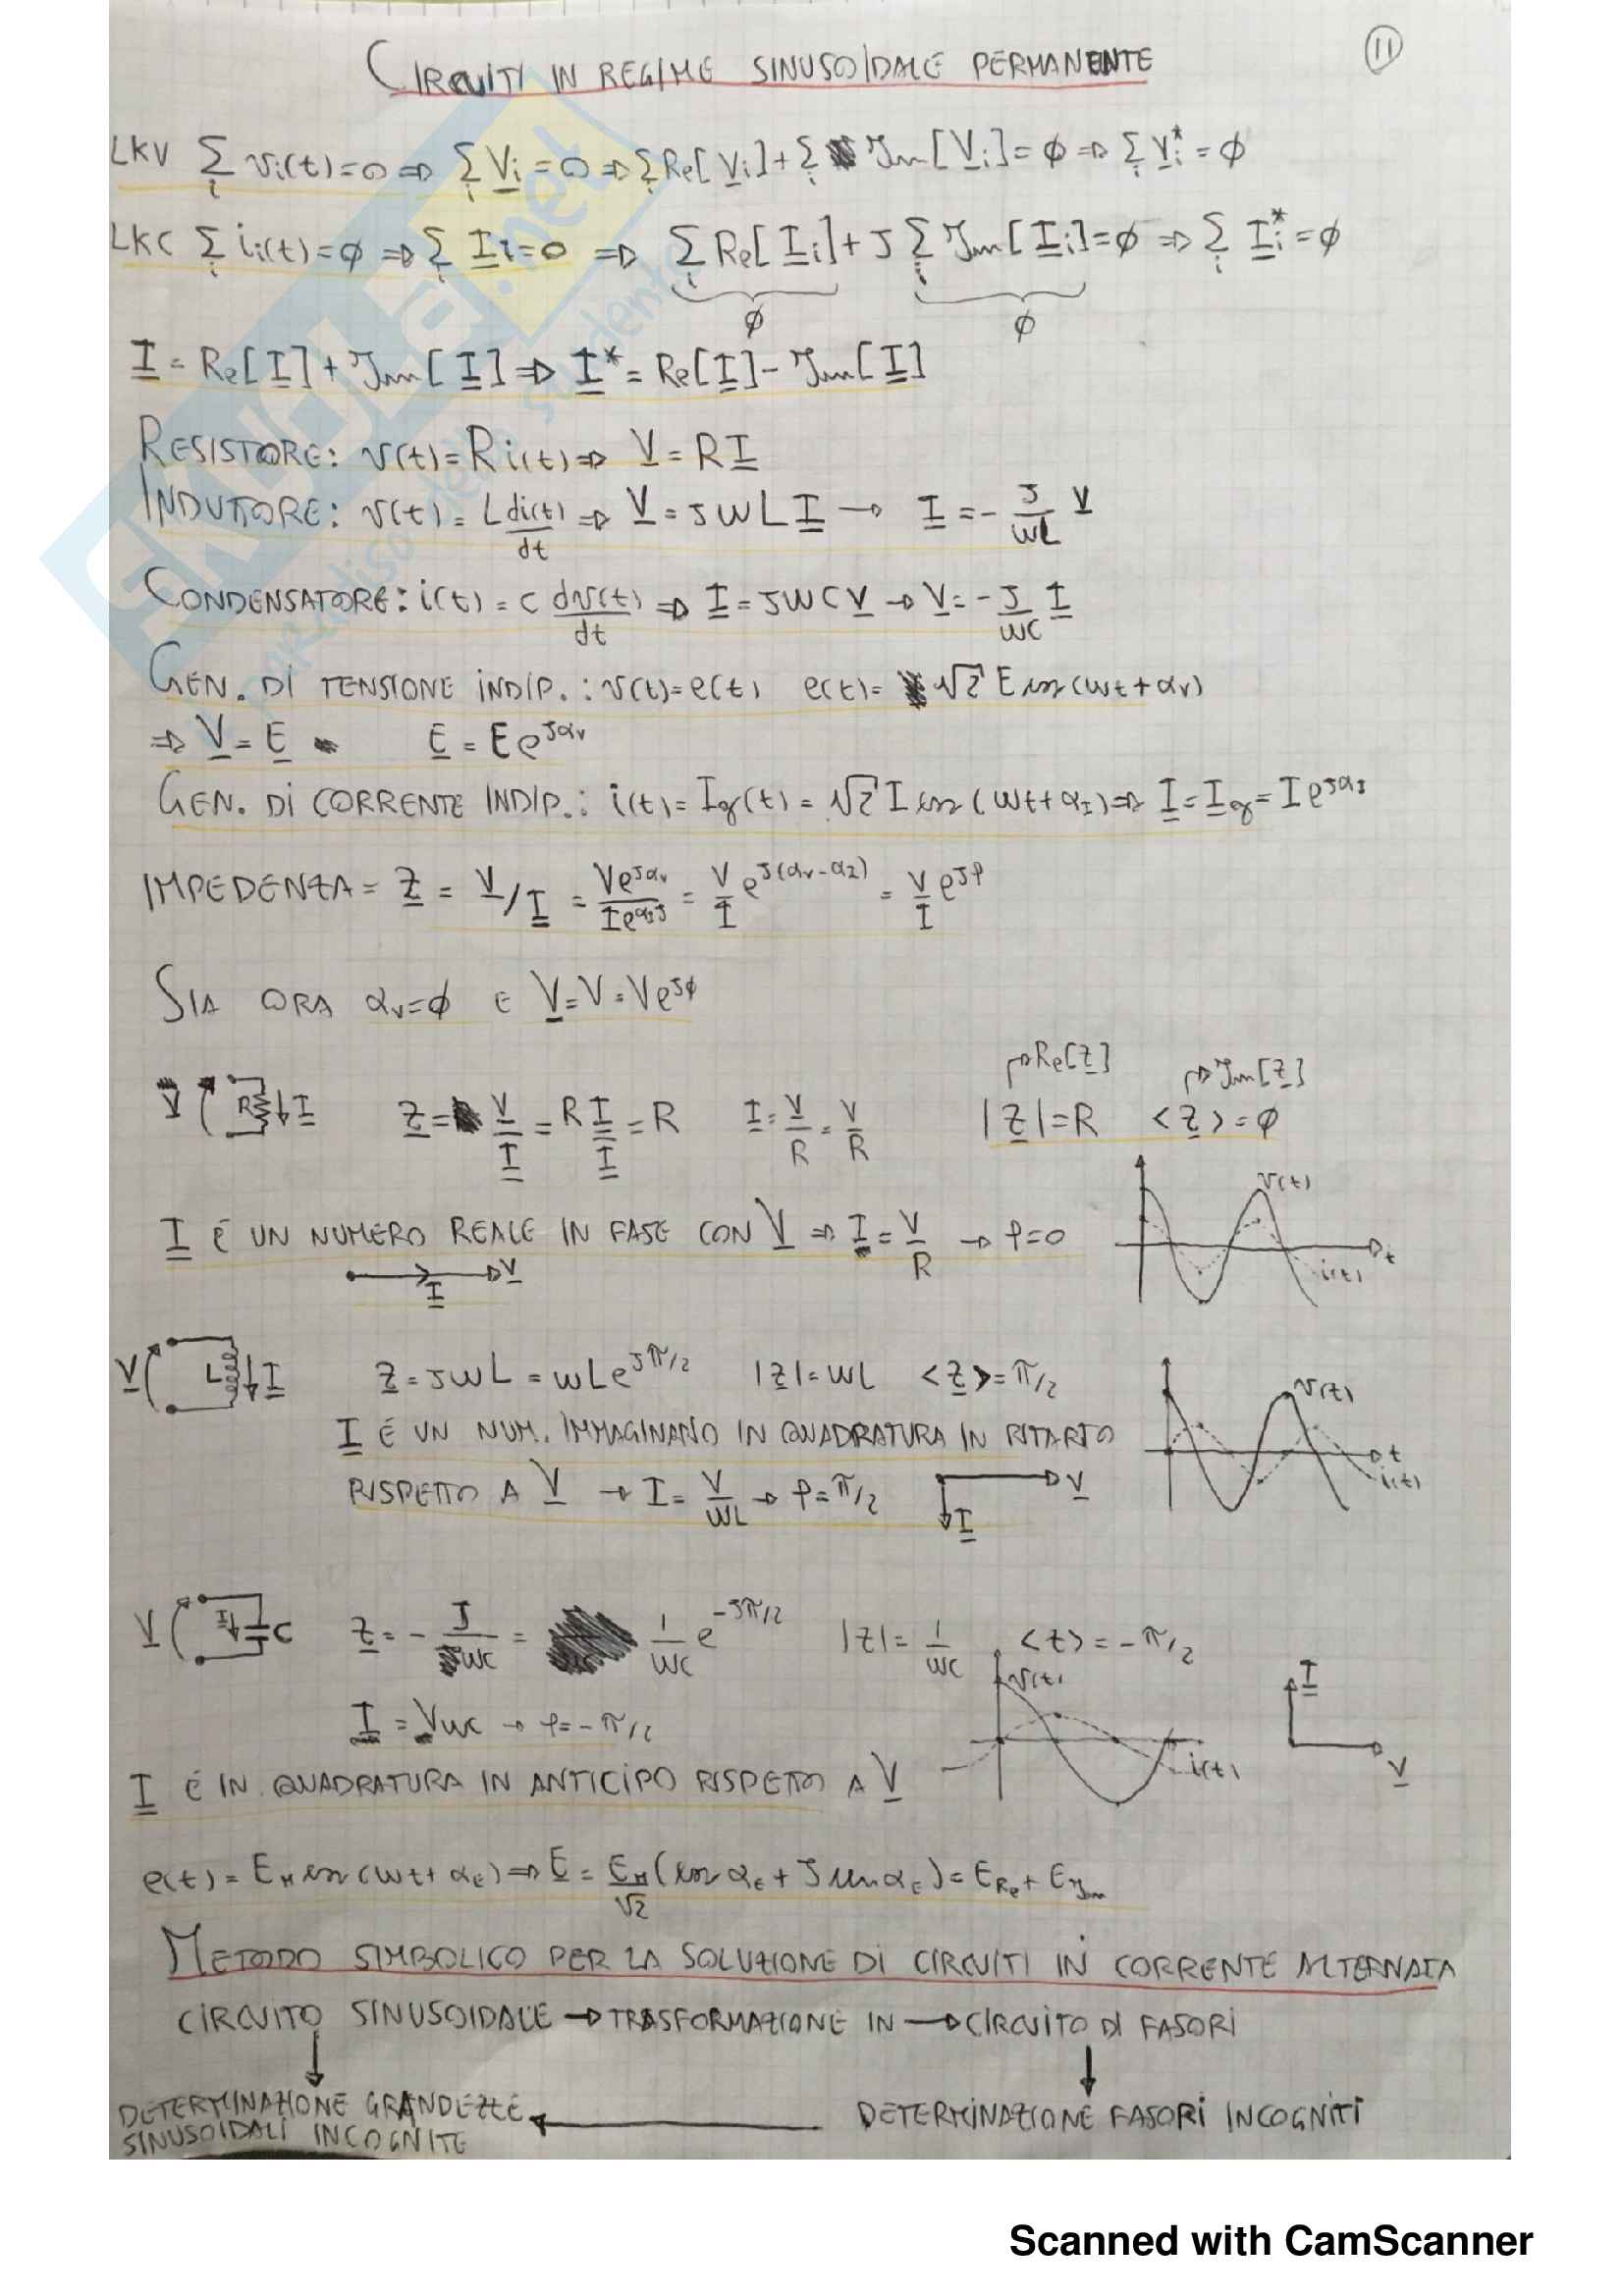 CIRCUITI IN REGIME SINUSOIDALE PERMANENTE
11
LKV Σ_i v_i(t)=0 ⇒ Σ_i V_i=0 ⇒ Σ_i Re[V_i]+Σ_i Im[V_i]=ϕ ⇒ Σ_i V_i*=ϕ
LKC Σ_i i_i(t)=ϕ ⇒ Σ_i I_i=0 ⇒ Σ_i Re[I_i]+J Σ_i Im[I_i]=ϕ ⇒ Σ_i I_i*=ϕ
ϕ ϕ
I = Re[I]+Im[I] ⇒ I* = Re[I]-Im[I]
RESISTORE: v(t)=Ri(t) ⇒ V=RI
INDUTTORE: v(t)=L di(t)/dt ⇒ V=JωLI → I=-J/ωL V
CONDENSATORE: i(t)=C dv(t)/dt ⇒ I=JωCV → V=-J/ωC I
GEN. DI TENSIONE INDIP.: v(t)=e(t), e(t)=√2 E cos(ωt+αv)
⇒ V=E E=Ee^Jαv
GEN. DI CORRENTE INDIP.: i(t)=Ig(t)=√2 I cos(ωt+αI) ⇒ I=Ig=Ie^JαI
IMPEDENZA = Z = V/I = Ve^Jαv/Ie^αIJ = V/I e^J(αv-αI) = V/I e^Jφ
SIA ORA αv=ϕ E V=V=Ve^Jϕ
Re[Z] Im[Z]
V R I Z=V/I=RI/I=R I=V/R=V/R |Z|=R <Z>=ϕ
v(t)
I È UN NUMERO REALE IN FASE CON V ⇒ I=V/R → φ=0
t
i(t)
V
I
V L I Z=JωL=ωLe^Jπ/2 |Z|=ωL <Z>=π/2
v(t)
I È UN NUM. IMMAGINARIO IN QUADRATURA IN RITARDO
t
RISPETTO A V → I=V/ωL → φ=π/2 V
i(t)
I
V I C Z=-J/ωC=1/ωC e^-Jπ/2 |Z|=1/ωC <Z>=-π/2
v(t) I
I=VωC → φ=-π/2
I È IN QUADRATURA IN ANTICIPO RISPETTO A V
i(t) V
e(t)=E_M cos(ωt+αE) ⇒ E=E_M/√2 (cos αE+J sen αE)=E_Re+E_Im
METODO SIMBOLICO PER LA SOLUZIONE DI CIRCUITI IN CORRENTE ALTERNATA
CIRCUITO SINUSOIDALE → TRASFORMAZIONE IN → CIRCUITO DI FASORI
DETERMINAZIONE GRANDEZZE ← DETERMINAZIONE FASORI INCOGNITI
SINUSOIDALI INCOGNITE
Scanned with CamScanner